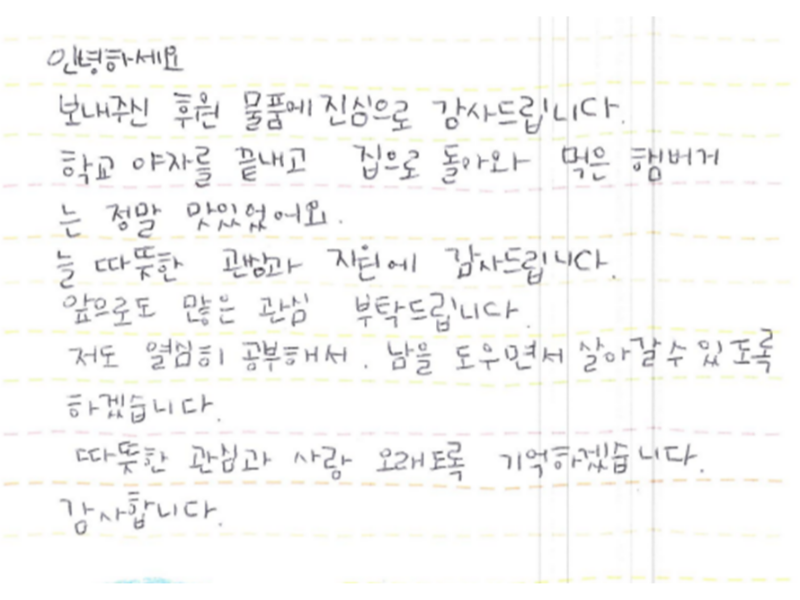 안녕하세요
보내주신 후원 물품에 진심으로 감사드립니다.
학교 야자를 끝내고 집으로 돌아와 먹은 햄버거
는 정말 맛있었어요.
늘 따뜻한 관심과 지원에 감사드립니다.
앞으로도 많은 관심 부탁드립니다.
저도 열심히 공부해서. 남을 도우면서 살아갈 수 있도록
하겠습니다.
따뜻한 관심과 사랑 오래도록 기억하겠습니다.
감사합니다.